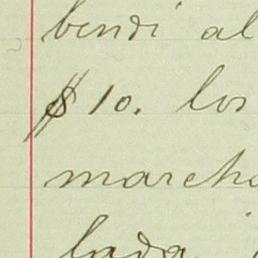 bendi al
$10. los
march
lada